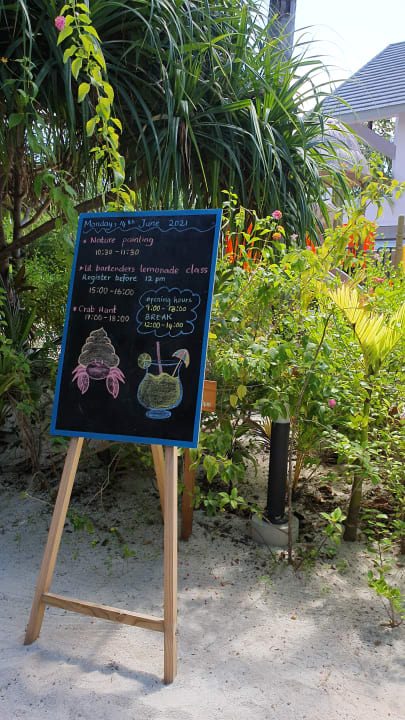 Monday, 14th June 2021
* Nature painting
10:30 - 11:30
* Lil bartenders lemonade class
Register before 12 pm
15:00 - 16:00
* Crab Hunt
17:00 - 18:00
opening hours
9:00 - 18:00
BREAK
12:00 - 14:00